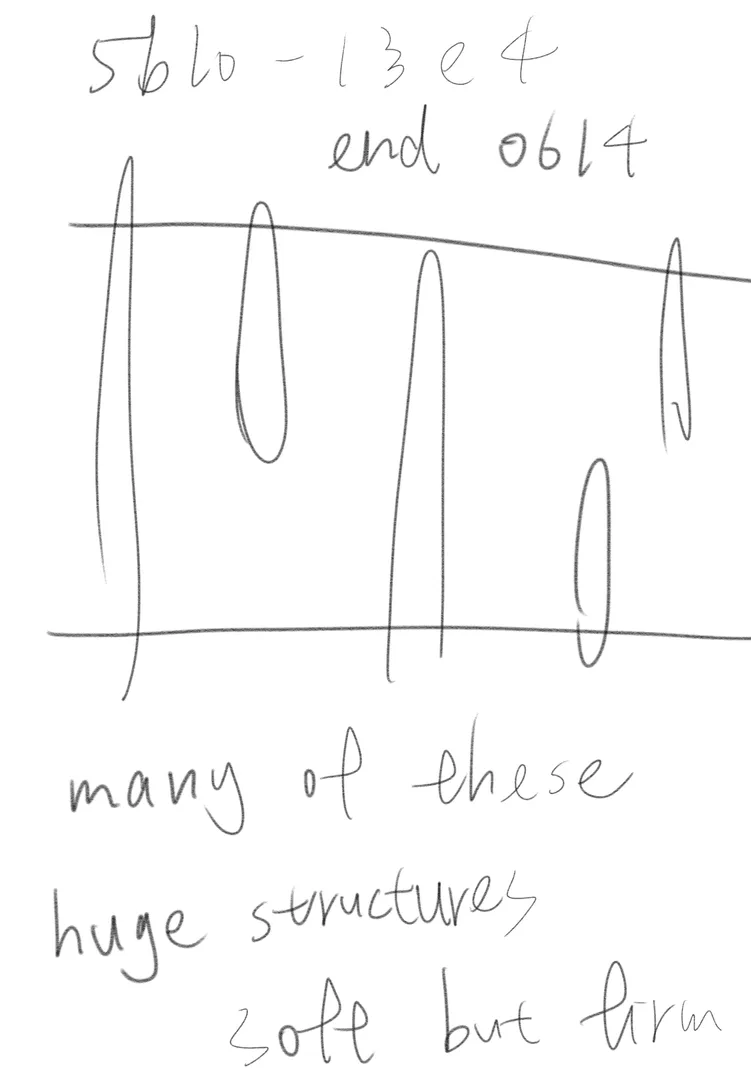 5610-13e4
end 0614
many of these
huge structures
soft but firm